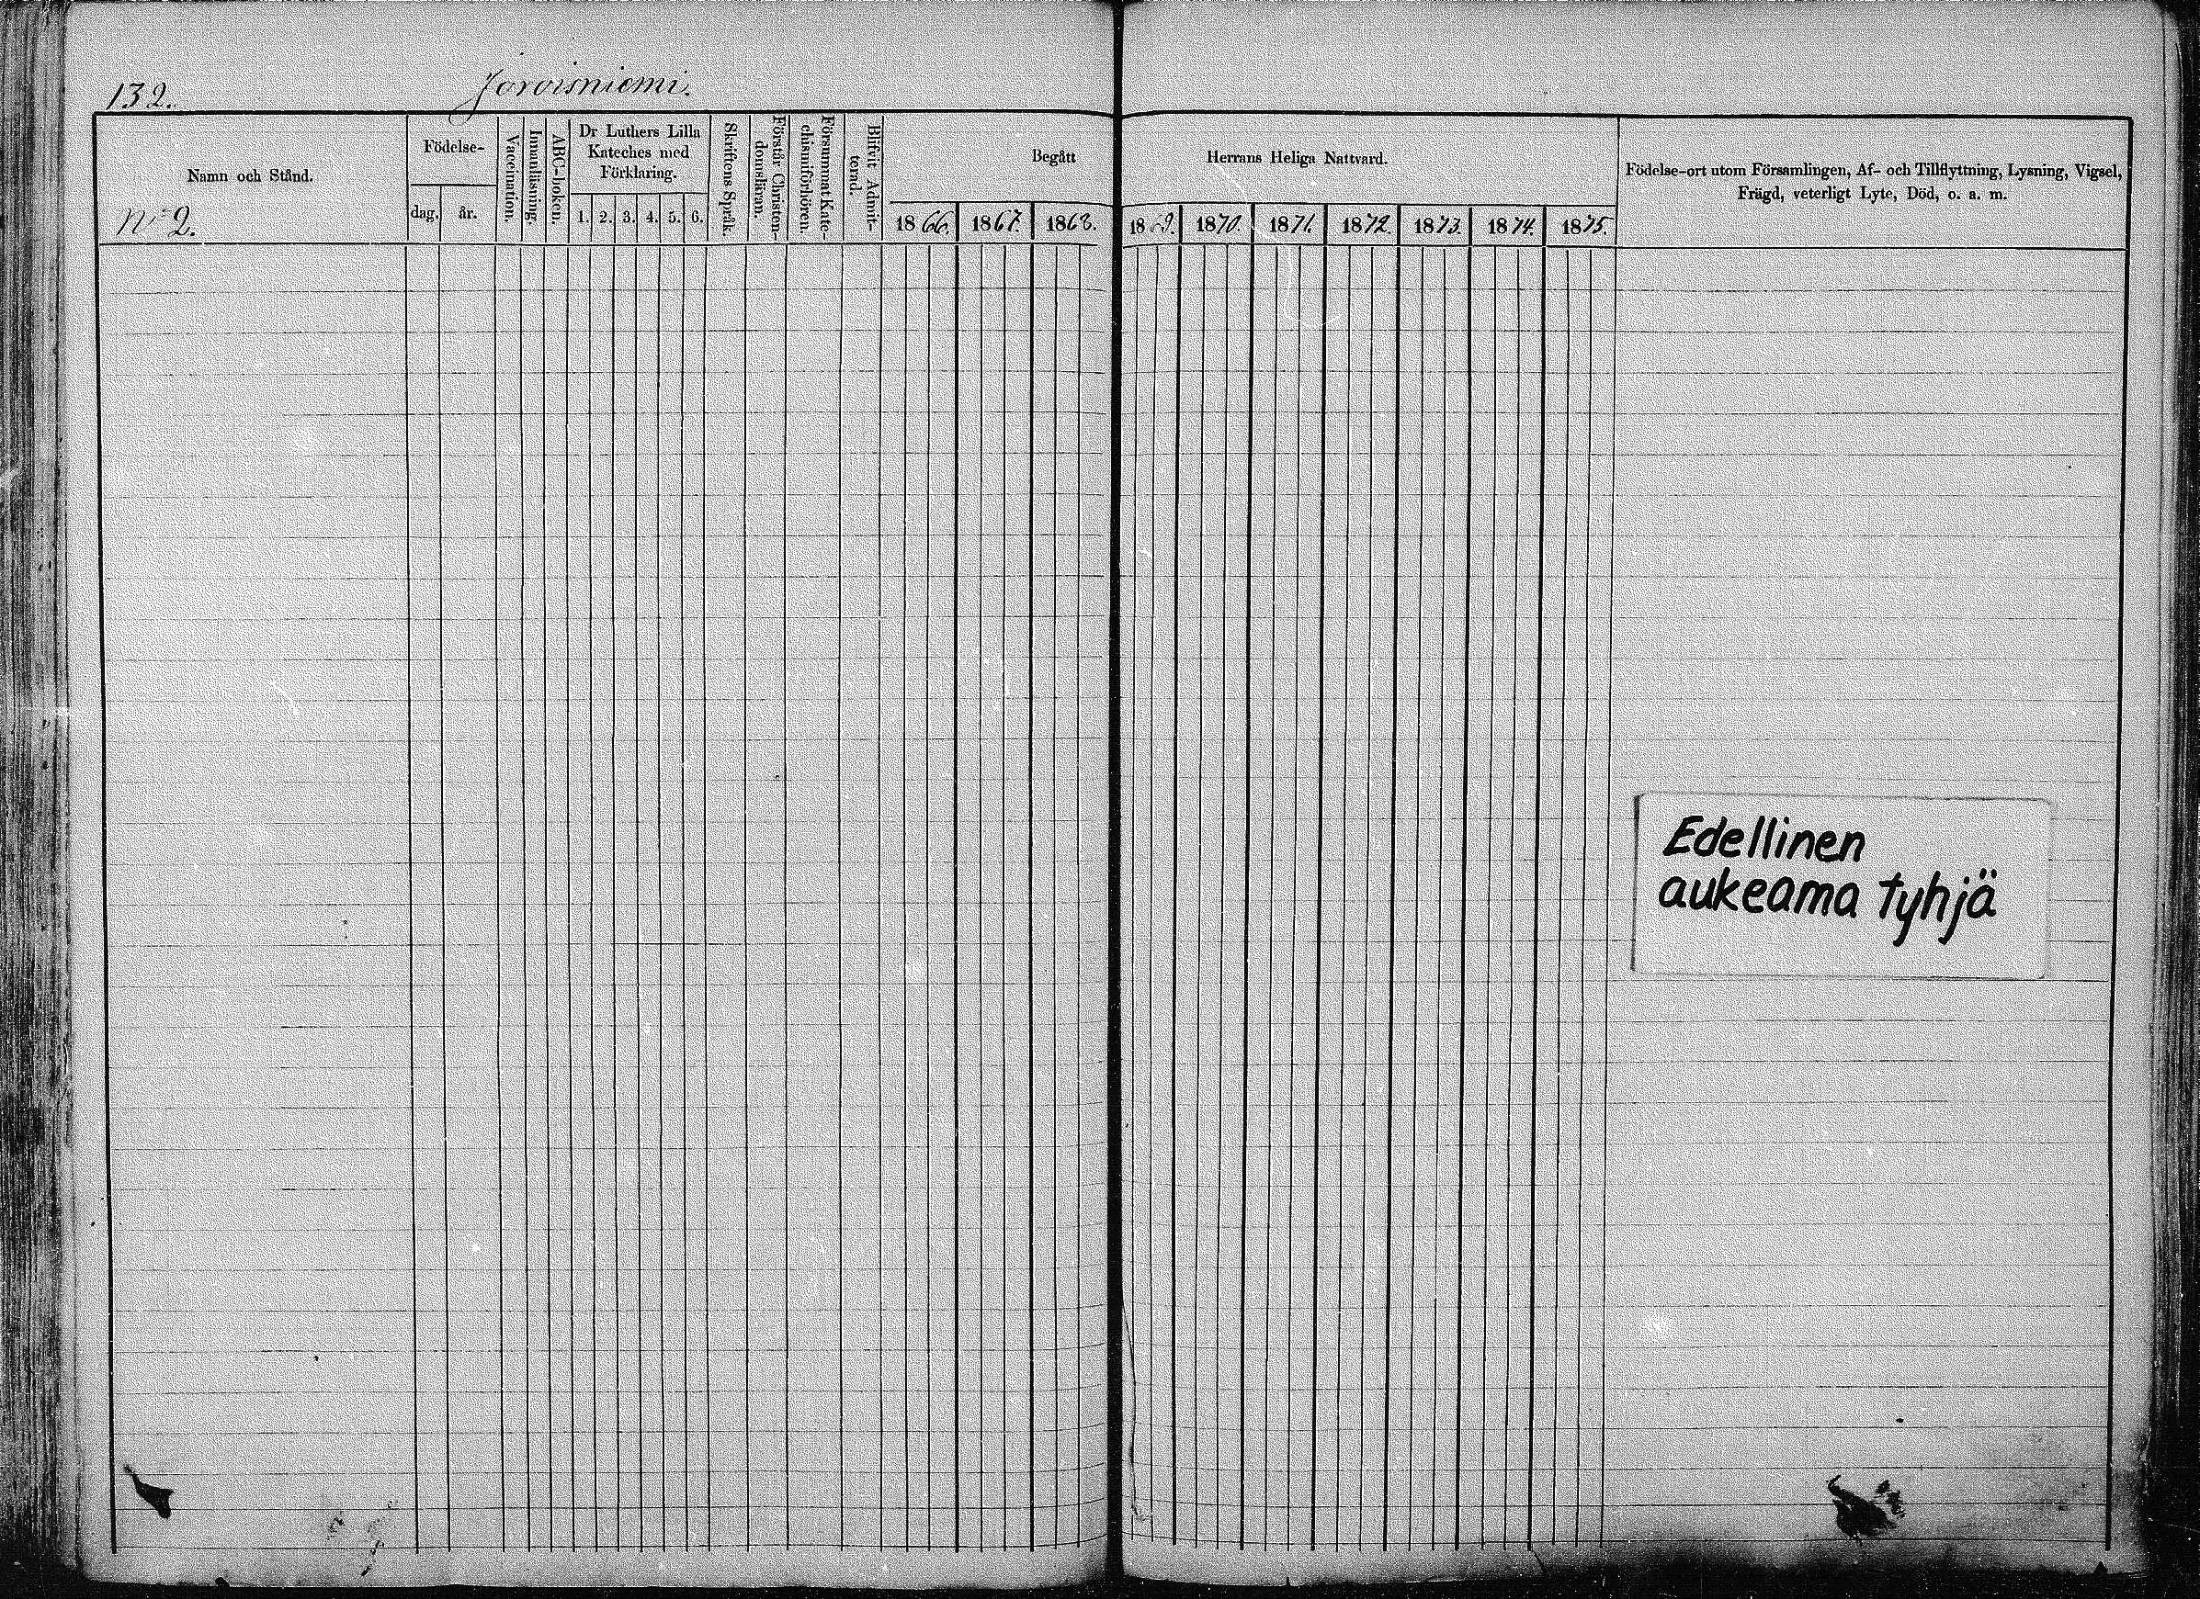 132.
Joroisniemi.
Namn och Stånd.
No 2.
Födelse-
dag. år.
Vaccination.
Innanläsning.
ABC-boken.
Dr Luthers Lilla
Kateches med
Förklaring.
1. 2. 3. 4. 5. 6.
Skriftens Språk.
Förstår Christen-
domsläran.
Försummat Kate-
chismiförhören.
Blifvit Admit-
terad.
Begått
1866. 1867. 1868.
Herrans Heliga Nattvard.
1869. 1870. 1871. 1872. 1873. 1874. 1875.
Födelse-ort utom Församlingen, Af- och Tillflyttning, Lysning, Vigsel,
Frägd, veterligt Lyte, Död, o. a. m.
Edellinen
aukeama tyhjä